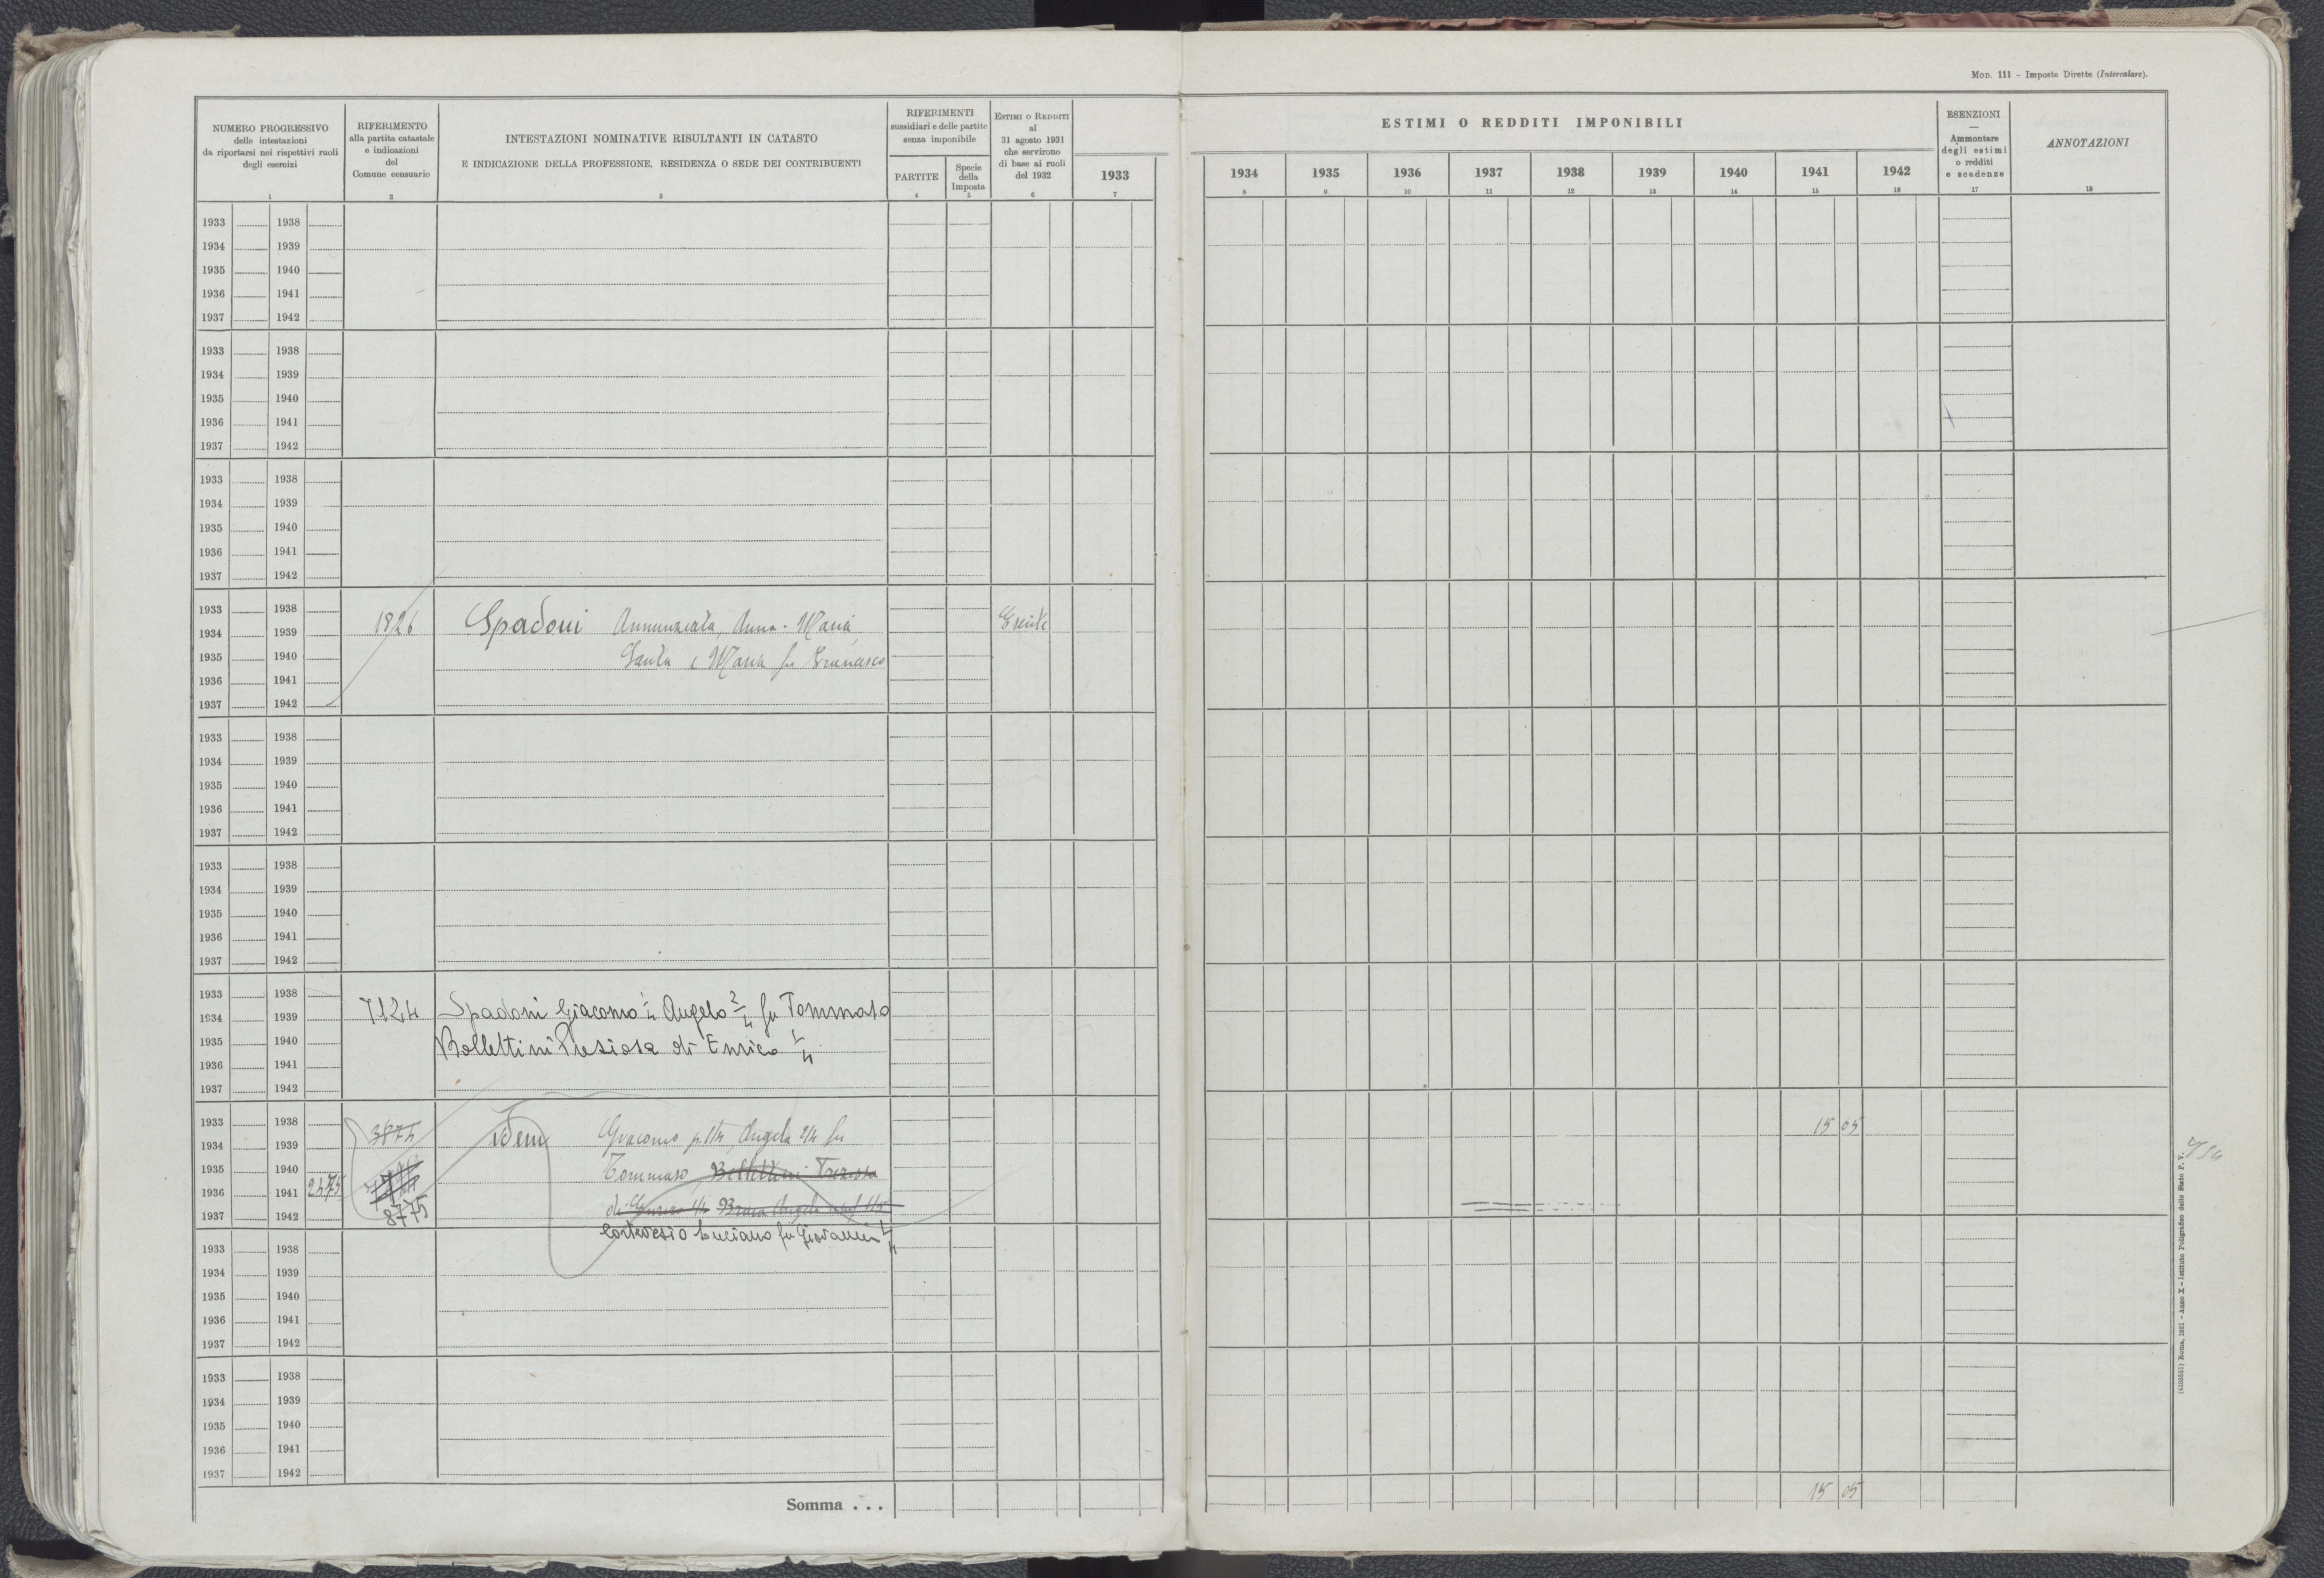 Mod. 111 – Imposte Dirette (Intercalare).
NUMERO PROGRESSIVO
delle intestazioni
da riportarsi nei rispettivi ruoli
degli esercizi
1
RIFERIMENTO
alla partita catastale
e indicazioni
del
Comune censuario
2
INTESTAZIONI NOMINATIVE RISULTANTI IN CATASTO
E INDICAZIONE DELLA PROFESSIONE, RESIDENZA O SEDE DEI CONTRIBUENTI
3
RIFERIMENTI
sussidiari e delle partite
senza imponibile
PARTITE
4
Specie
della
Imposta
5
ESTIMI O REDDITI
al
31 agosto 1931
che servirono
di base ai ruoli
del 1932
6
ESTIMI O REDDITI IMPONIBILI
1933
7
1934
8
1935
9
1936
10
1937
11
1938
12
1939
13
1940
14
1941
15
1942
16
ESENZIONI
—
Ammontare
degli estimi
o redditi
e scadenze
17
ANNOTAZIONI
18
1933 1938
1934 1939
1935 1940
1936 1941
1937 1942
1933 1938
1934 1939
1935 1940
1936 1941
1937 1942
1933 1938
1934 1939
1935 1940
1936 1941
1937 1942
1933 1938
1934 1939 1826 Spadoni Annunziata, Anna-Maria, Esente
1935 1940 Santa e Maria fu Francesco
1936 1941
1937 1942
1933 1938
1934 1939
1935 1940
1936 1941
1937 1942
1933 1938
1934 1939
1935 1940
1936 1941
1937 1942
1933 1938
1934 1939 7124 Spadoni Giacomo 1/4 Angelo 2/4 fu Tommaso
1935 1940 Bollettini Preziosa di Enrico 1/4
1936 1941
1937 1942
1933 1938 3874 idem Giacomo p. 1/4, Angelo 2/4 fu 15 05
1934 1939
1935 1940 Tommaso, Bollettini
1936 1941 2475
1937 1942 8775 di Enrico 1/4 Angela 1/4
Luciano fu Giovanni 1/4
1933 1938
1934 1939
1935 1940
1936 1941
1937 1942
1933 1938
1934 1939
1935 1940
1936 1941
1937 1942
Somma . . . 15 05
(4103551) Roma, 1931 – Anno X – Istituto Poligrafico dello Stato P. V.